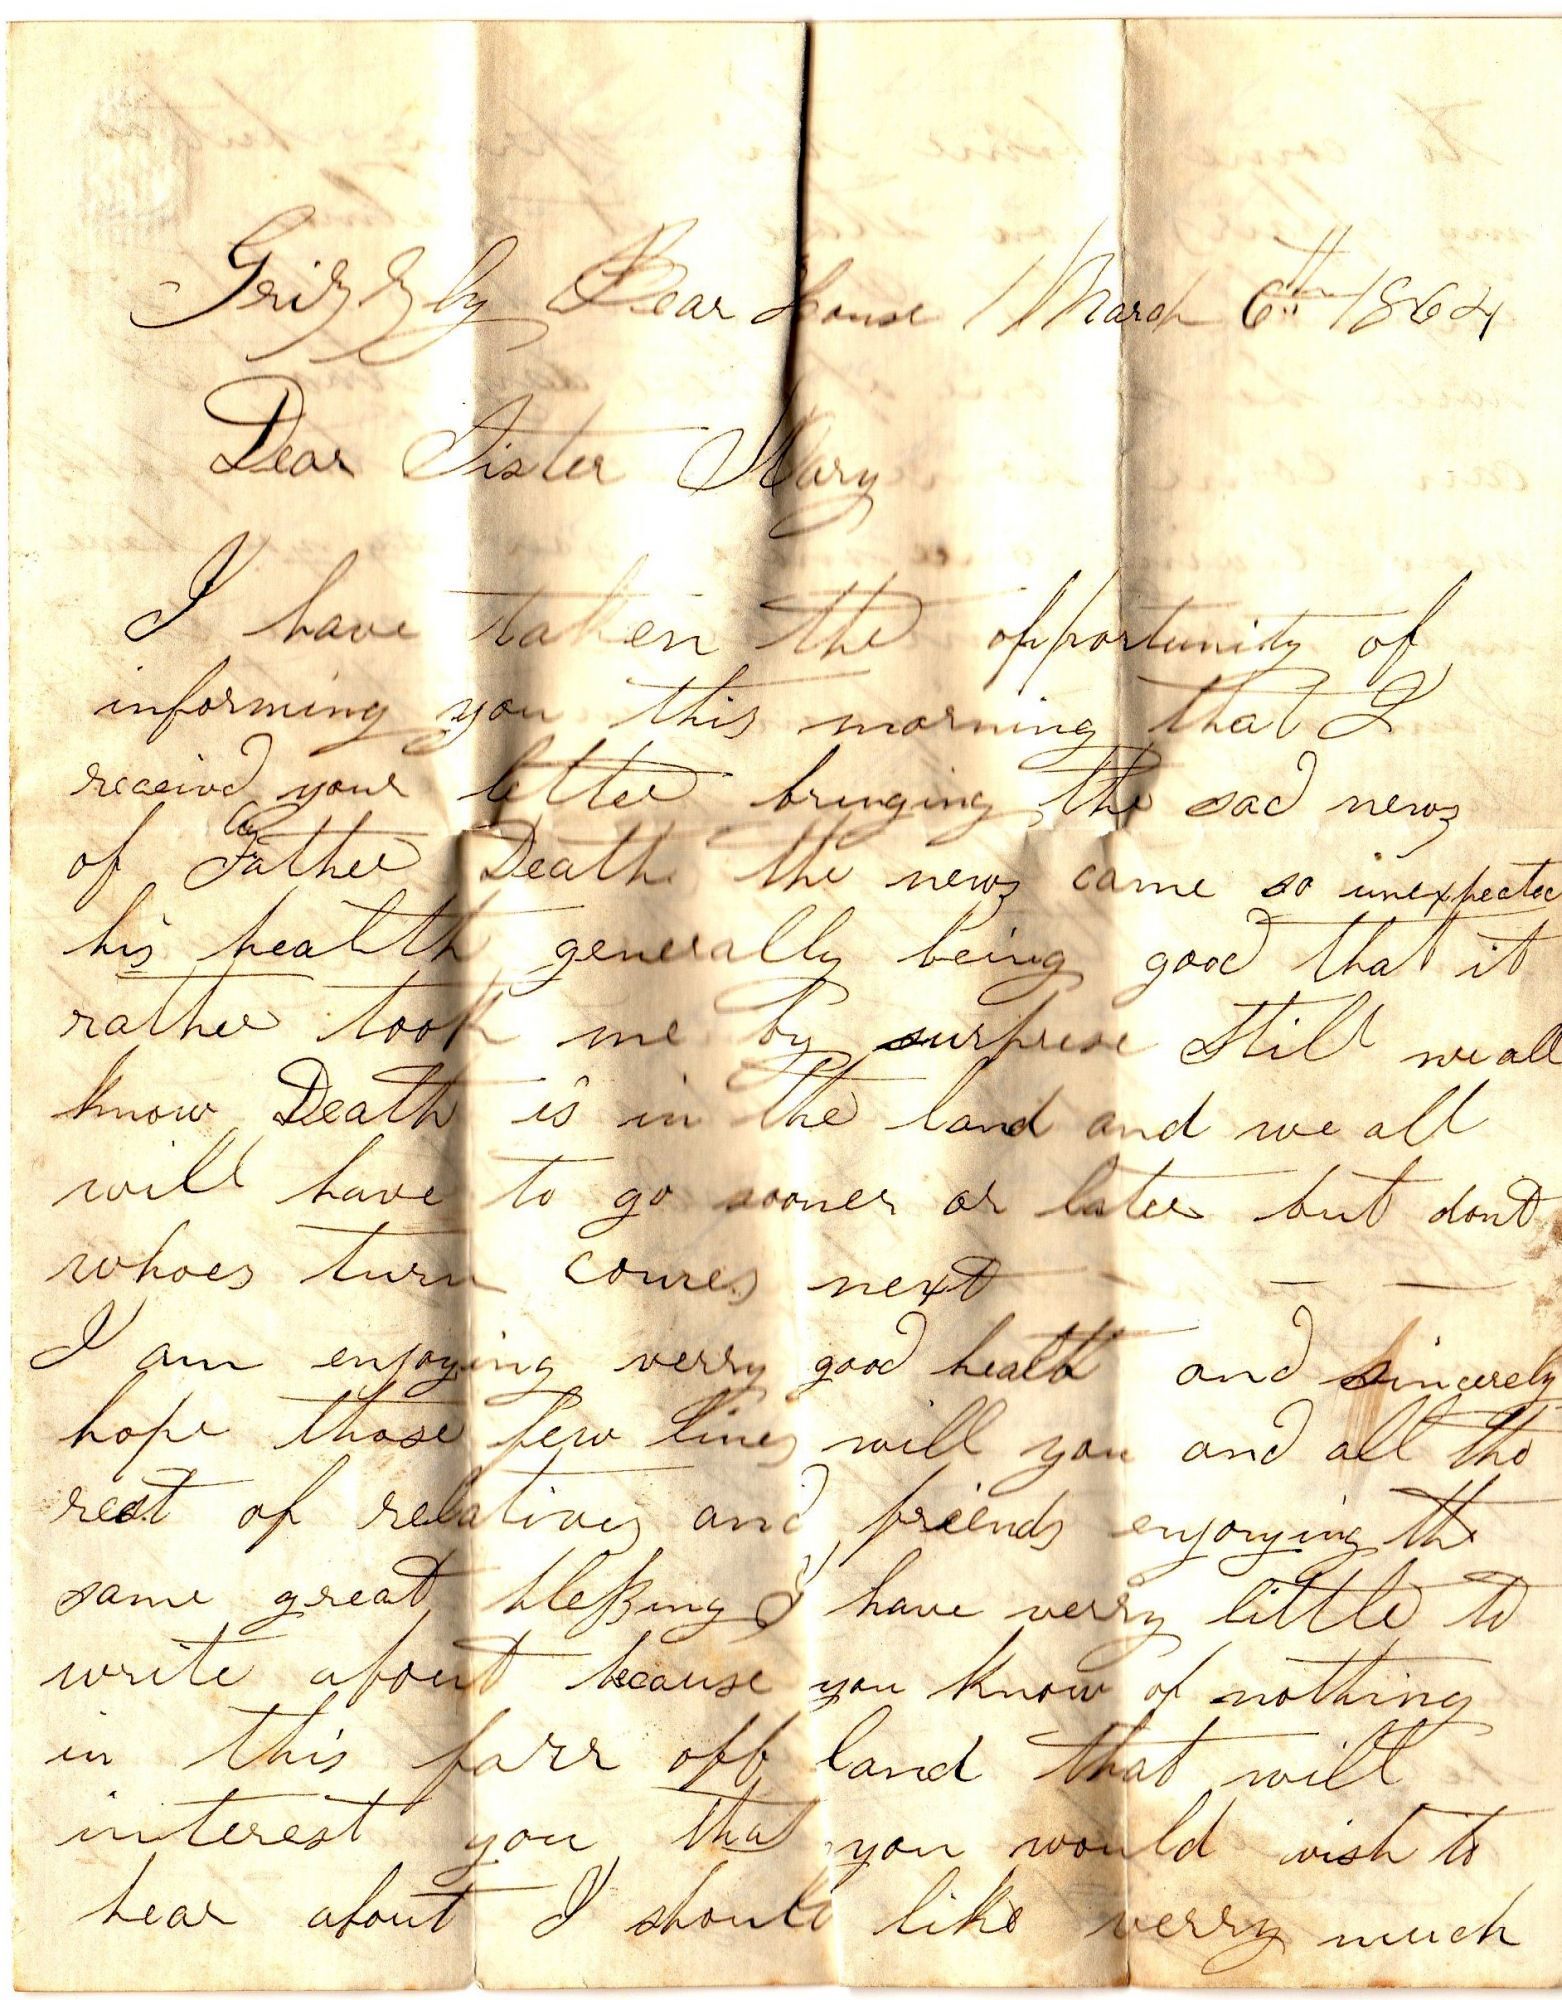 Grizzly Bear House March 6th 1864
Dear Sister Mary
I have taken the opportunity of
informing you this morning that I
receivd your letter bringing the sad news
of Father Death the news came so unexpected
his health generally being good that it
rather took me by surprise Still we all
know Death is in the land and we all
will have to go sooner or later but dont
whoes turn comes next — — —
I am enjoying verry good health and sincerely
hope those few lines will you and all the
rest of relatives and friends enjoying the
same great blessing I have verry little to
write about because you know of nothing
in this farr off land that will
interest you that you would wish to
hear about I should like verry much